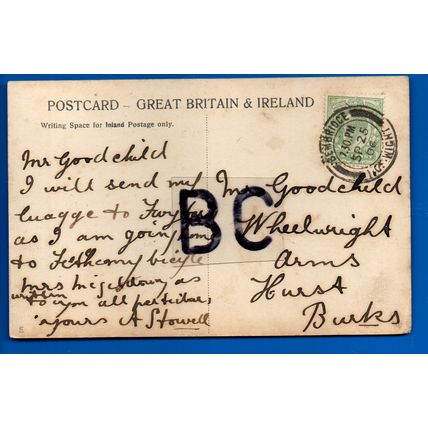 POSTCARD – GREAT BRITAIN & IRELAND
Writing Space for Inland Postage only.
BEMBRIDGE
7.30 PM
SP 25
06
I. OF WIGHT
Mr Goodchild
I will send my
luagge to Twyford
as I am going
to Fetch my bicycle
Mrs as
written
to you all
yours A Stowell
Mr Goodchild
Wheelwright
Arms
Hurst
Burks
BC
E